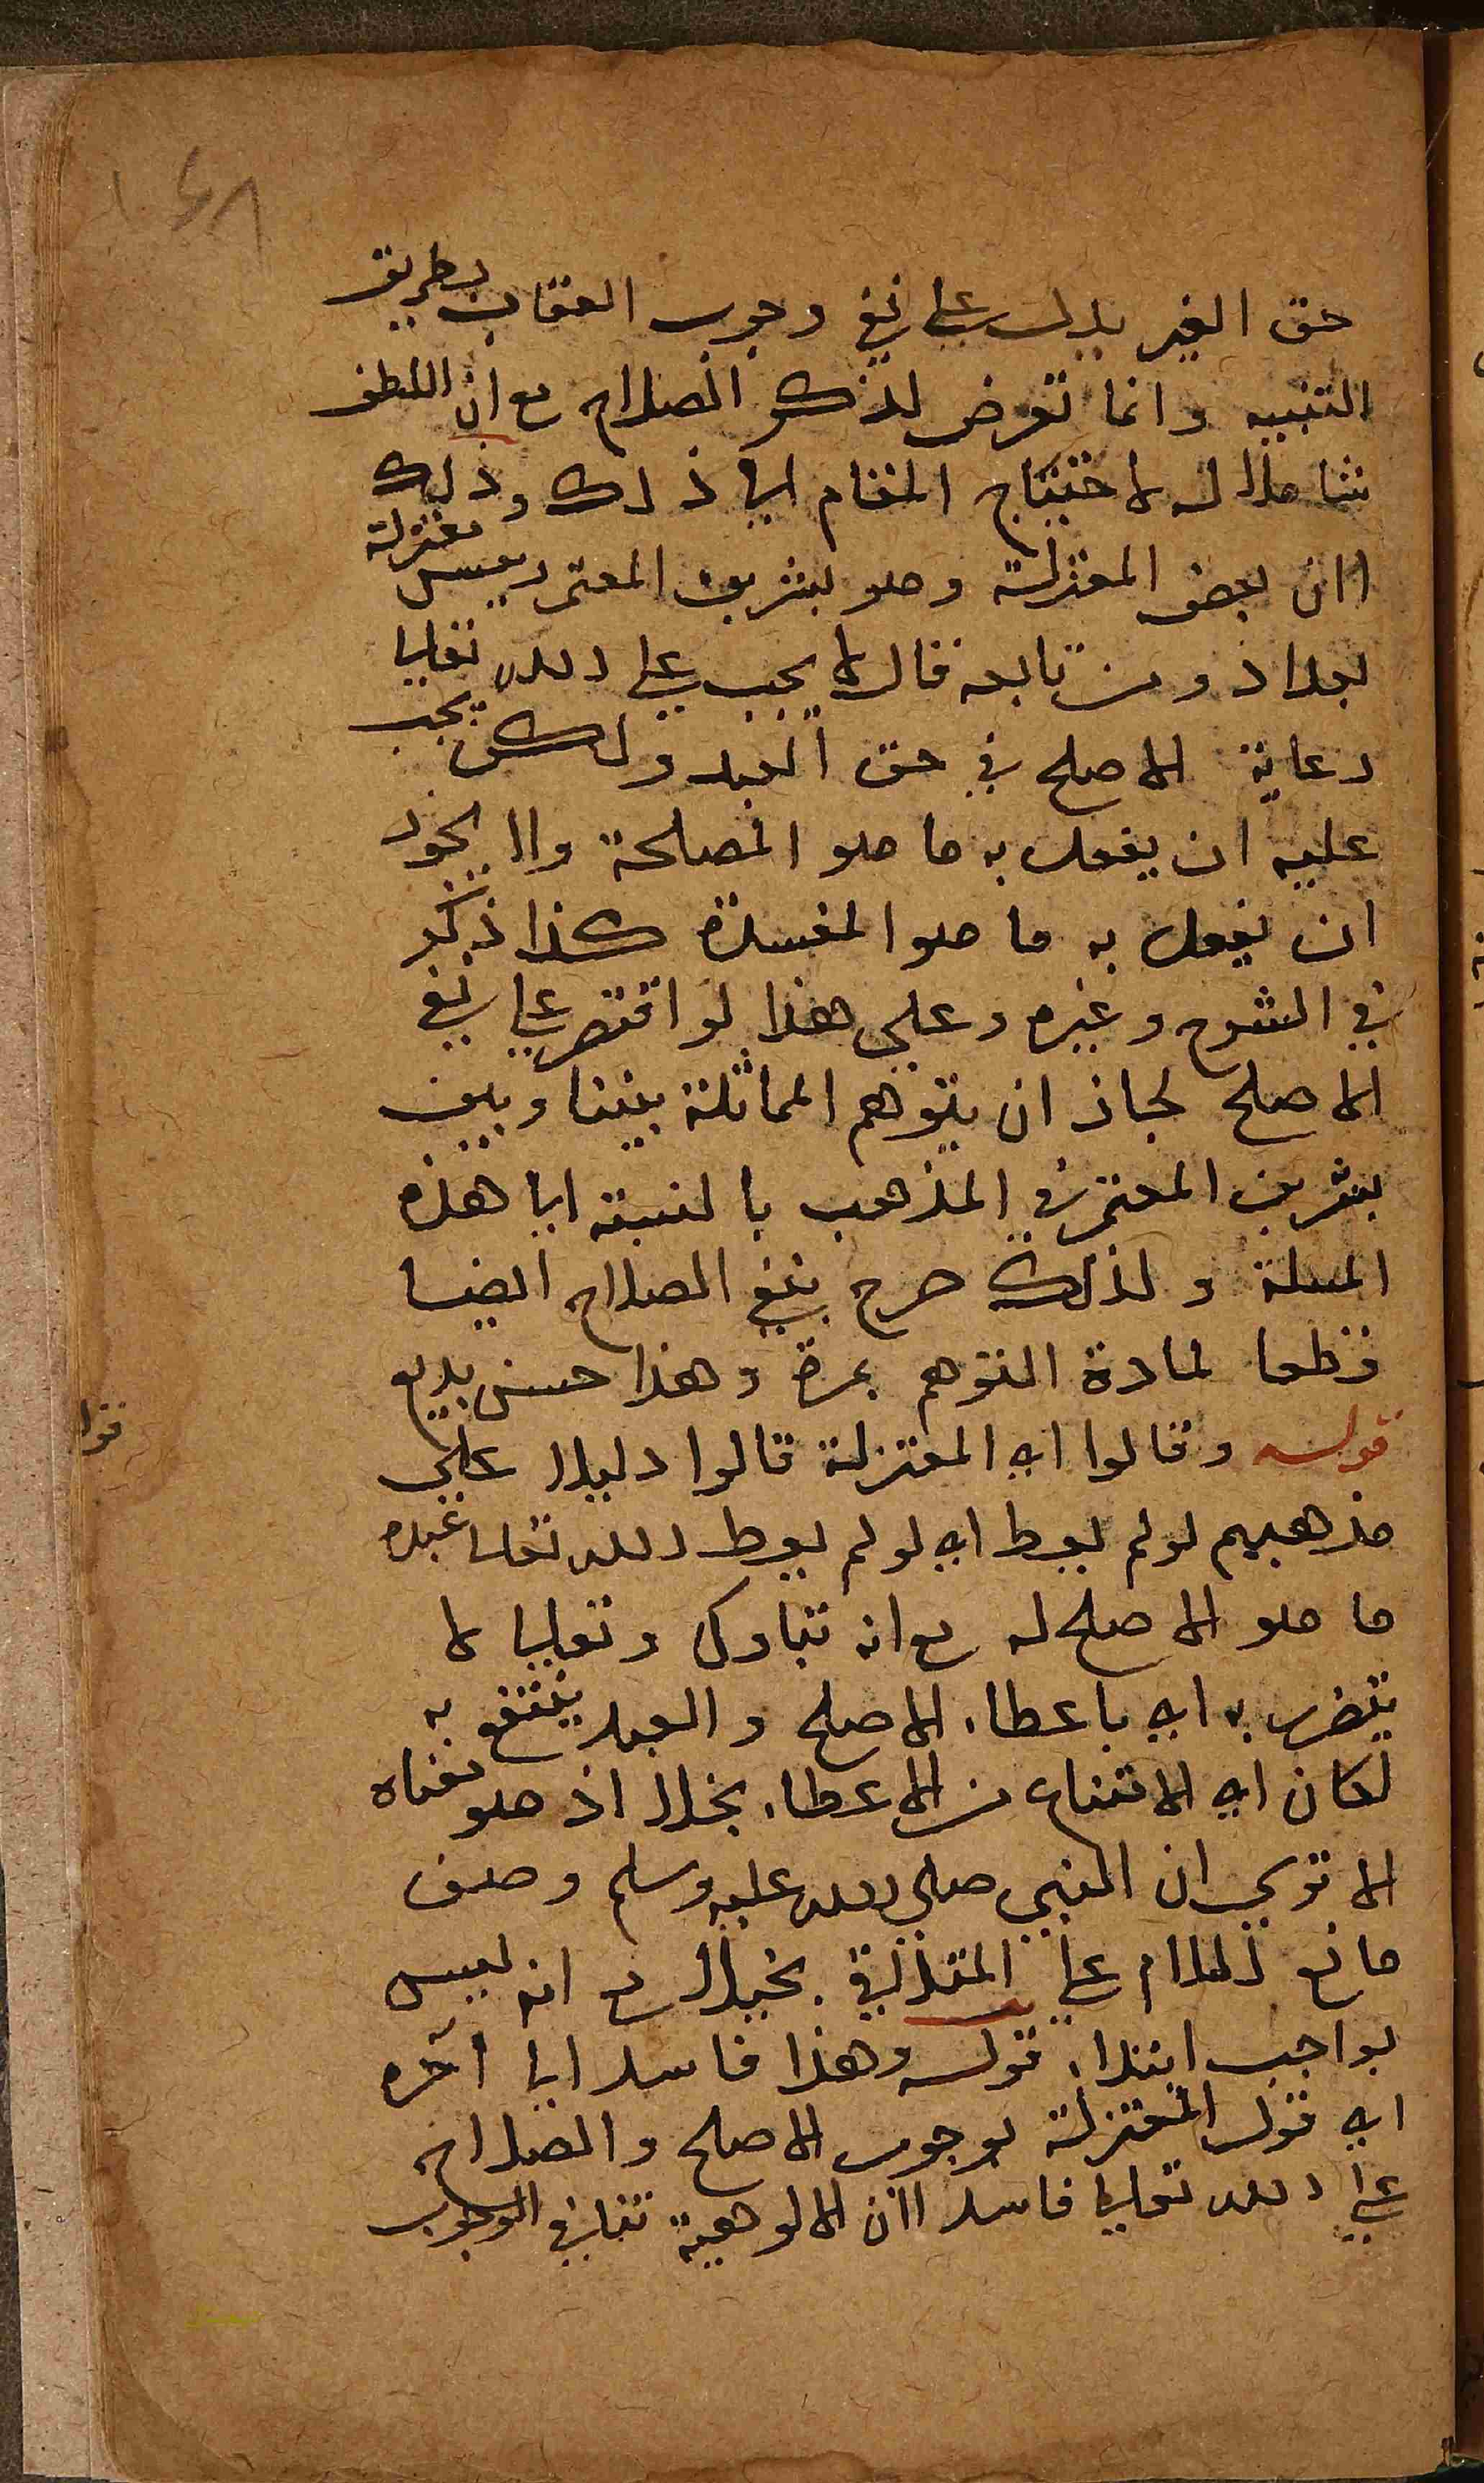 ١٤٨
حق الغير يدل على نفي وجوب العقاب بطريق
التنبيه وانما تعرض لذكر الصلاح مع ان اللطف
شاملا له لاحتياج المقام الي ذلك وذلك
لان بعض المعتزلة وهو بشر بن المعتمر رييس معتزلة
بغداد ومن تابعه قال لا يجب على الله تعالي
رعاية الاصلح في حق العبد ولكن يجب
عليه ان يفعل به ما هو المصلحة ولا يجوز
ان يفعل به ما هو المفسدة كذا ذكر
في الشرح وغيره وعلي هذا لو اقتصر علي نفي
الاصلح لجاز ان يتوهم المماثلة بيننا وبين
بشر بن المعتمر في المذهب بالنسبة الي هذه
المسلة ولذلك صرح بنفي الصلاح ايضا
قطعا لمادة التوهم بمرة وهذا حسن بديع
قوله وقالوا اي المعتزلة قالوا دليلا علي
مذهبهم لو لم يعط اي لو لم يعط الله تعالي عبده
ما هو الاصلح له مع انه تبارك وتعالي لا
يتضرر به اي باعطاء الاصلح والعبد ينتفع به
لكان اي الامتناع من الاعطاء بخلا اذ هو معناه
الا تري ان النبي صلي الله عليه وسلم وصف
مانع السلام علي المتذلي بخيلا مع انه ليس
بواجب ابتداء قوله وهذا فاسد الي آخره
اي قول المعتزلة بوجوب الاصلح والصلاح
علي الله تعالي فاسد لان الالوهية تنافي الوجوب
قوله